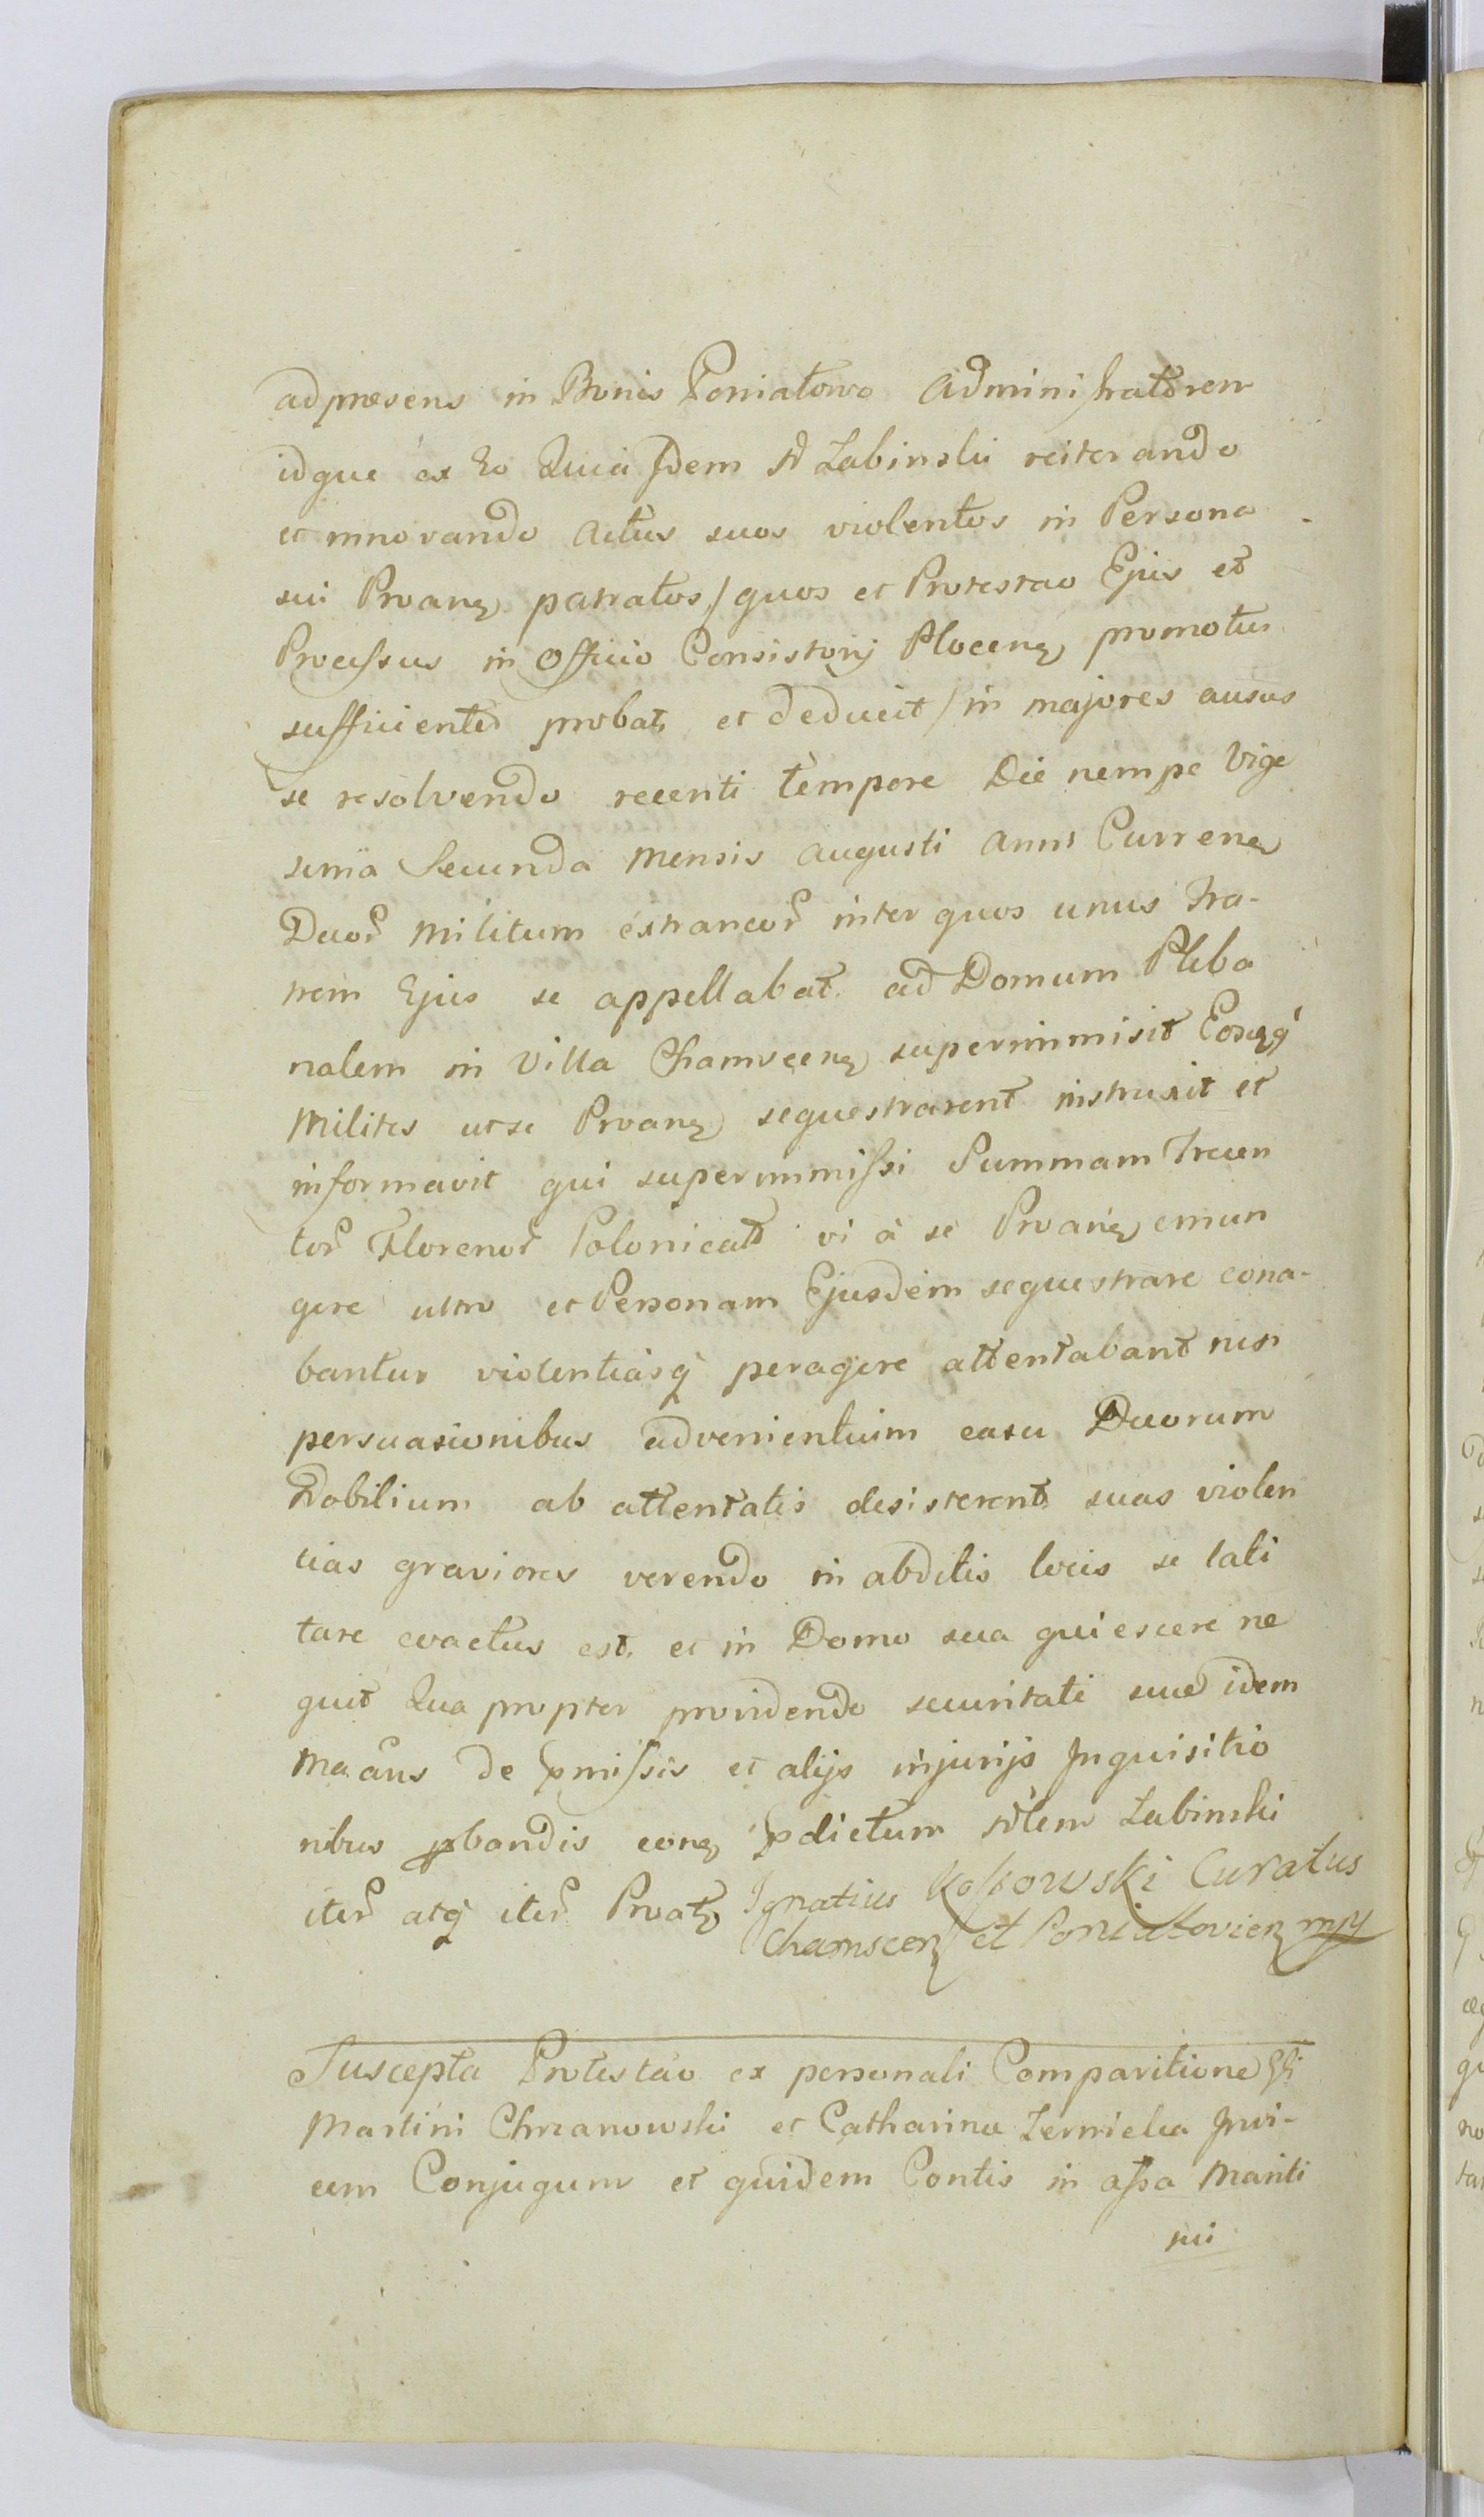 ad præsens in Bonis Poniatowo Administratorem
idque ex Eo Quia Idem Labinski reiterando
et innovando Actus suos violentos in Persona
sui Proang patratos / quos et Protestao Ejus et
Processus in Officio Consistorij Ploceng promotus
sufficienter probat et deducit / in majores ausus
se resolvendo recenti tempore Die nempe Vige
sima Secunda Mensis Augusti Anni Curreng
Duor Militum extraneor inter quos unus Fra-
trem Ejus se appellabat ad Domum Pleba
nalem in Villa Chamsceng superimmisit Eosqq
Milites ut se Proang sequestrarent instruxit et
informavit qui superimmissi Summam Trecen
tor Florenor Polonical vi à se Proang emun
gere ultro et Personam Ejusdem sequestrare cona-
bantur violentiasq peragere attentabant nisi
persuasionibus advenientium casu Duorum
Nobilium ab attentatis desisterent suas violen
tias graviores verendo in abditis locis se lati
tare coactus est et in Domo sua quiescere ne
quit Qua propter providendo securitati suæ idem
Maans de pmissis et alijs injurijs Inquisitio
nibus pbandis cong pdictum Labinski
iter atq iter Proat Ignatius Kossowski Curatus
Chamscen et Poniatovien mpp
Suscepta Protestao ex personali Comparitione
Martini Chrzanowski et Catharinæ Invi-
cem Conjugum et quidem Contis in assa Mariti
sui